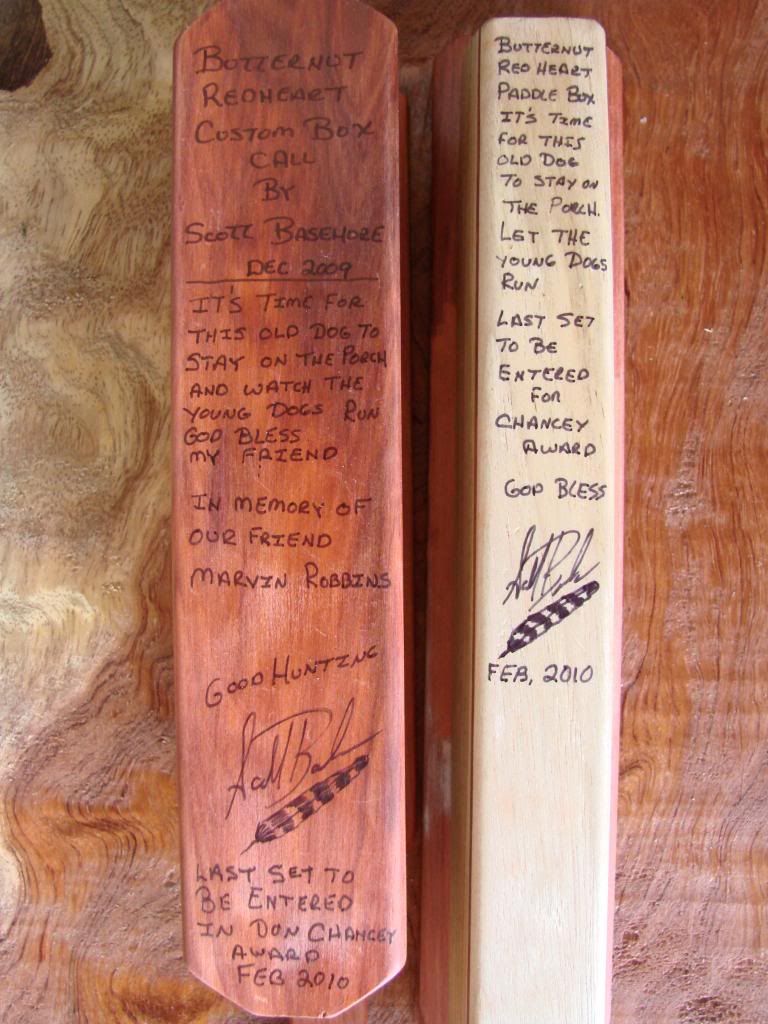 BUTTERNUT
REDHEART
CUSTOM BOX
CALL
BY
SCOTT BASEHORE
DEC 2009
IT'S TIME FOR
THIS OLD DOG TO
STAY ON THE PORCH
AND WATCH THE
YOUNG DOGS RUN
GOD BLESS
MY FRIEND
IN MEMORY OF
OUR FRIEND
MARVIN ROBBINS
GOOD HUNTING
LAST SET TO
BE ENTERED
IN DON CHANCEY
AWARD
FEB 2010
BUTTERNUT
RED HEART
PADDLE BOX
IT'S TIME
FOR THIS
OLD DOG
TO STAY ON
THE PORCH.
LET THE
YOUNG DOGS
RUN
LAST SET
TO BE
ENTERED
FOR
CHANCEY
AWARD
GOD BLESS
FEB, 2010